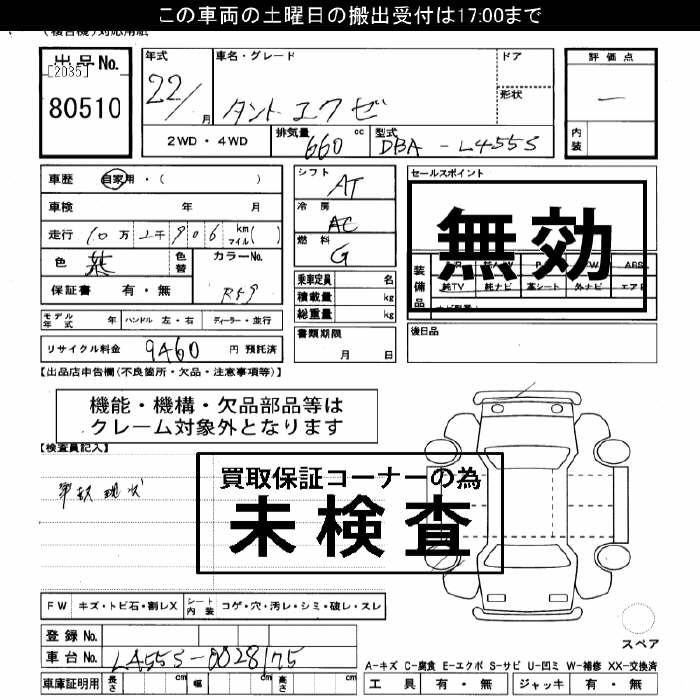 この車両の土曜日の搬出受付は17:00まで
出品No.
[2035]
80510
年式
22/
月
車名・グレード
タント エグゼ
ドア
形状
2WD・4WD
排気量
660
cc
型式
DBA-L455S
評価点
内装
車歴
自家用・( )
車検
年
月
走行
10万2千906
km
マイル( )
色
色替
カラーNo.
R59
保証書
有・無
シフト
AT
冷房
AC
燃料
G
乗車定員
名
積載量
kg
総重量
kg
書類期限
月
日
セールスポイント
無効
装備品
ABS
純TV
純ナビ
革シート
外ナビ
後日品
モデル年式
年
ハンドル
左・右
ディーラー・並行
リサイクル料金
9460
円 預託済
【出品店申告欄(不良箇所・欠品・注意事項等)】
機能・機構・欠品部品等は
クレーム対象外となります
【検査員記入】
事故現状
買取保証コーナーの為
未検査
FW
キズ・トビ石・割レX
シート内装
コゲ・穴・汚レ・シミ・破レ・スレ
スペア
登録No.
車台No.
LA55S-0028175
車庫証明用
長さ
cm
幅
cm
高さ
cm
A-キズ C-腐食 E-エクボ S-サビ U-凹ミ W-補修 XX-交換済
工具
有・無
ジャッキ
有・無